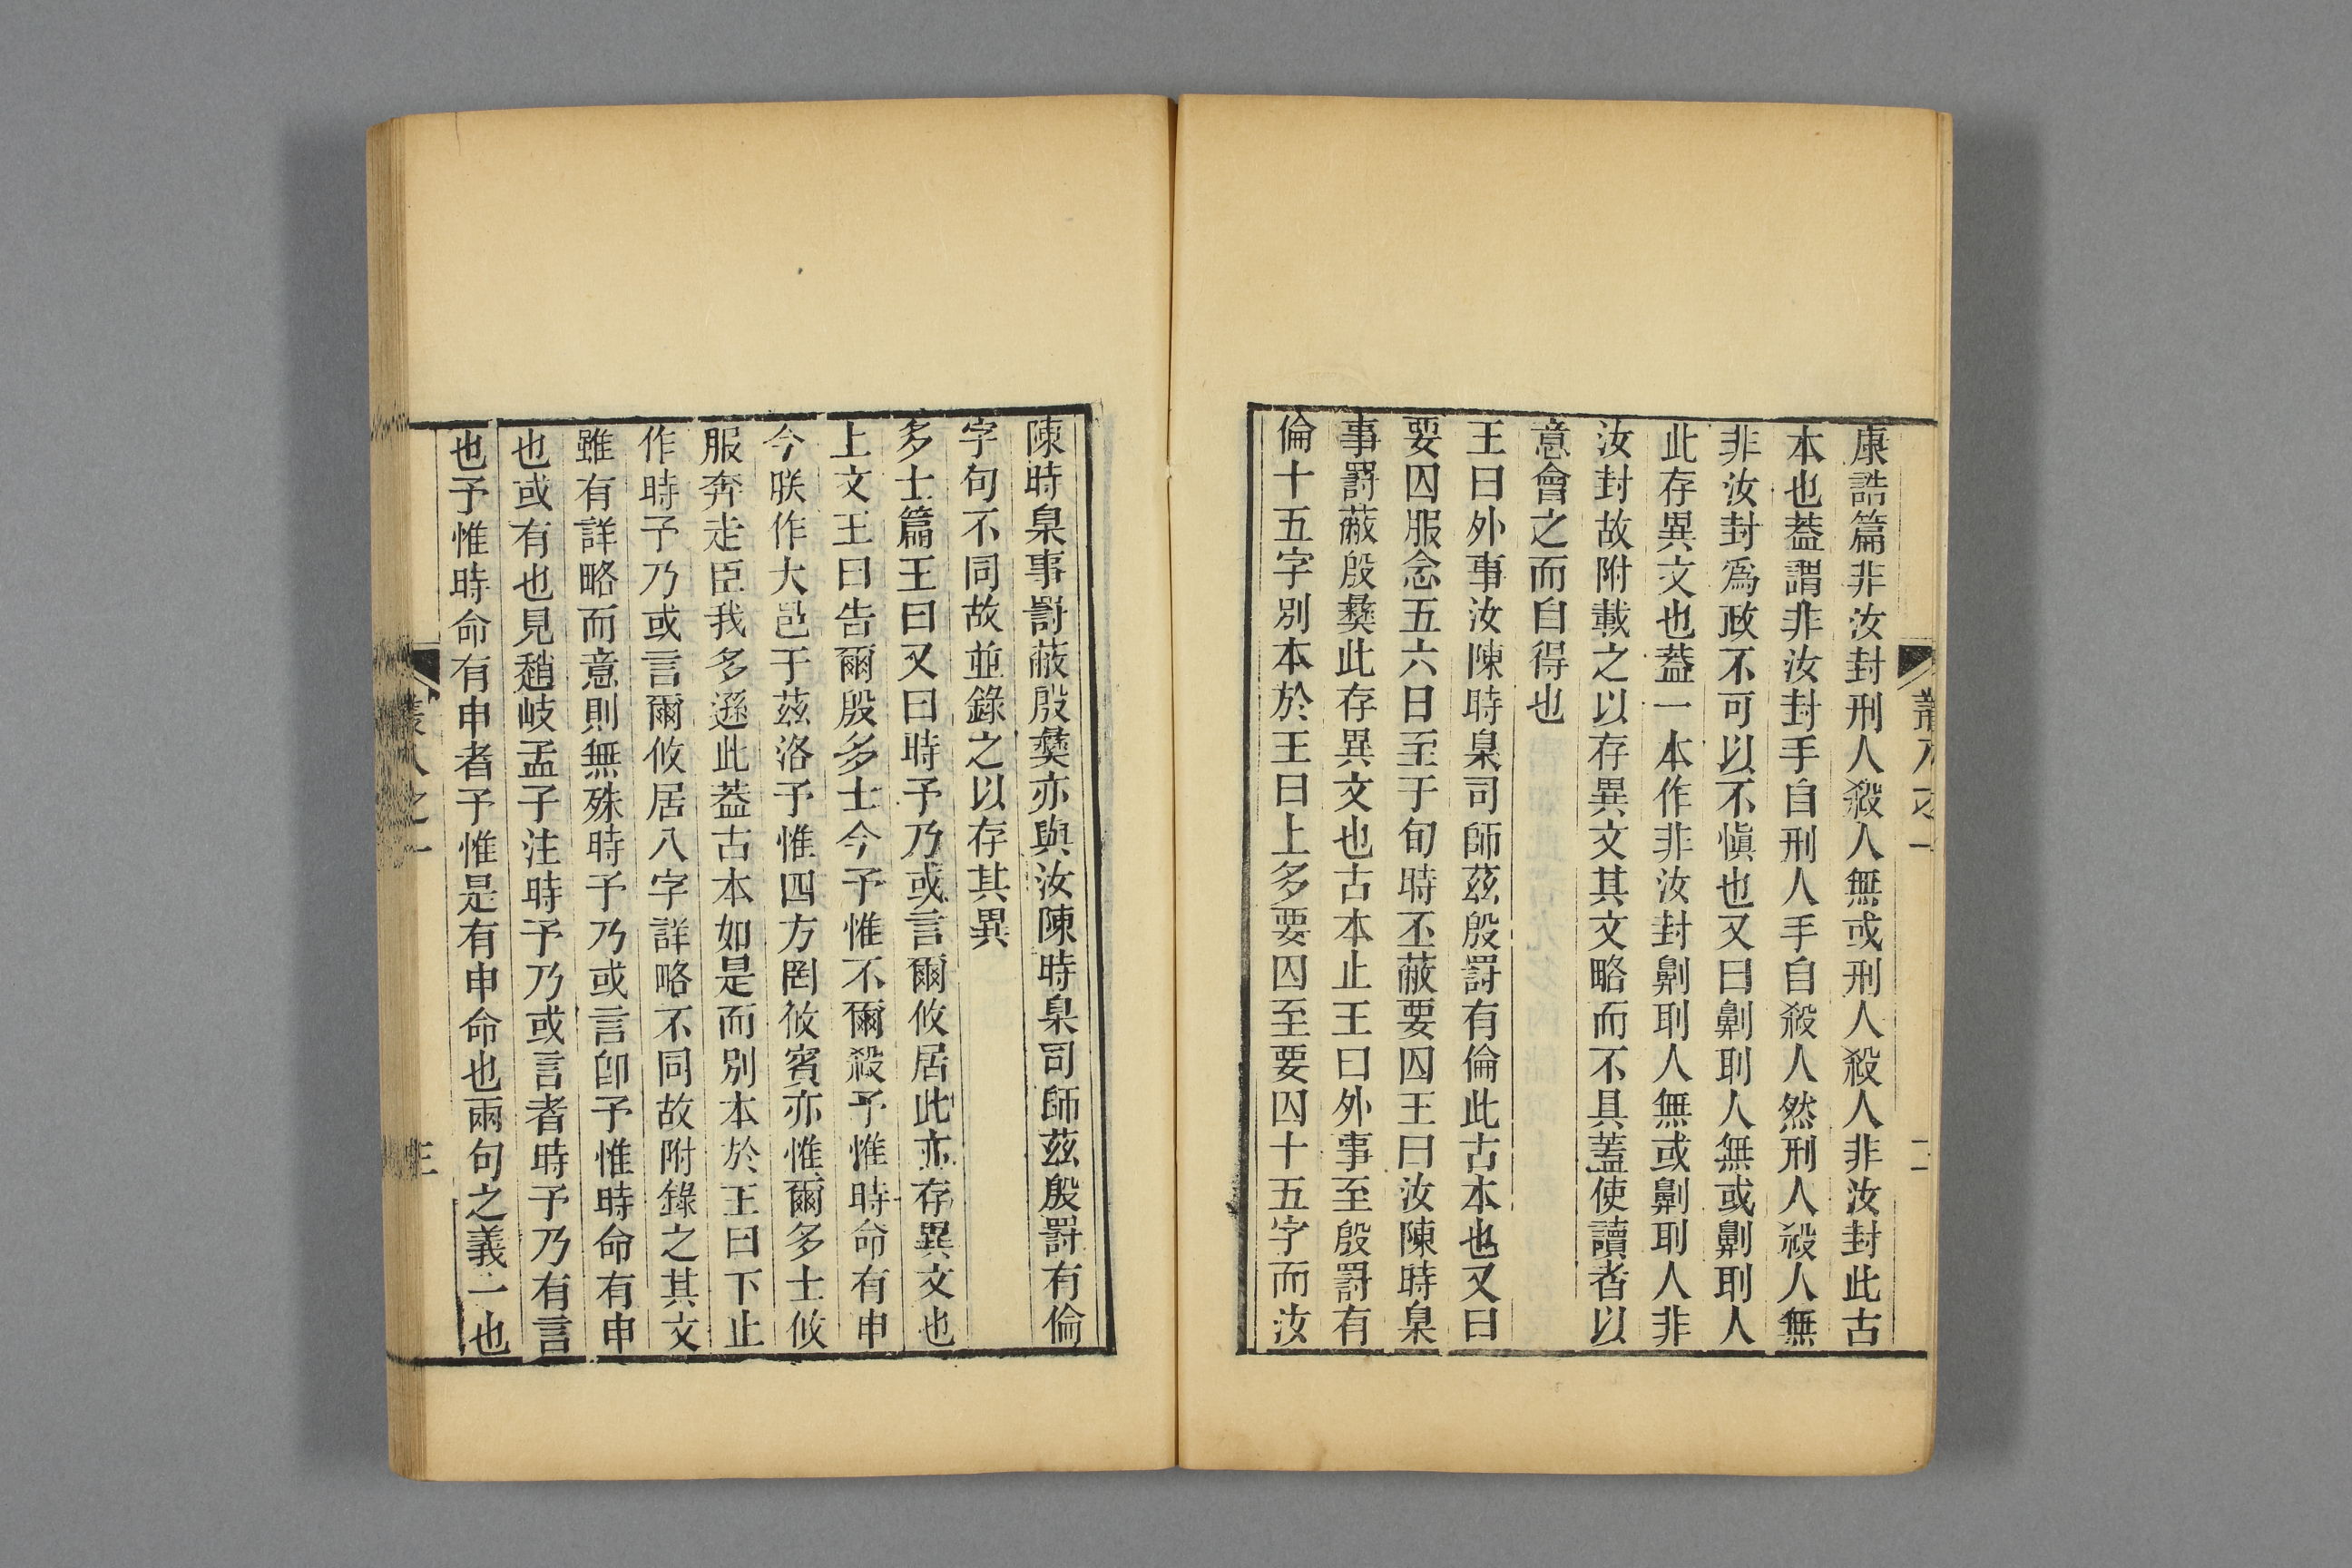 康誥篇非汝封刑人殺人無或刑人殺人非汝封此古
本也葢謂非汝封手自刑人手自殺人然刑人殺人無
非汝封爲政不可以不愼也又曰劓刵人無或劓刵人
此存異文也葢一本作非汝封劓刵人無或劓刵人非
汝封故附載之以存異文其文略而不具蓋使讀者以
意會之而自得也
王曰外事汝陳時臬司師茲殷罰有倫此古本也又曰
要囚服念五六日至于旬時丕蔽要囚王曰汝陳時臬
事罰蔽殷彝此存異文也古本止王曰外事至殷罰有
倫十五字別本於王曰上多要囚至要囚十五字而汝
陳時臬事罰蔽殷彝亦與汝陳時臬司師茲殷罰有倫
字句不同故並錄之以存其異
多士篇王曰又曰時予乃或言爾攸居此亦存異文也
上文王曰告爾殷多士今予惟不爾殺予惟時命有申
今朕作大邑于茲洛予惟四方罔攸賓亦惟爾多士攸
服奔走臣我多遜此葢古本如是而別本於王曰下止
作時予乃或言爾攸居八字詳略不同故附錄之其文
雖有詳略而意則無殊時予乃或言卽予惟時命有申
也或有也見趙岐孟子注時予乃或言者時予乃有言
也予惟時命有申者予惟是有申命也兩句之義一也
叢八之一
三